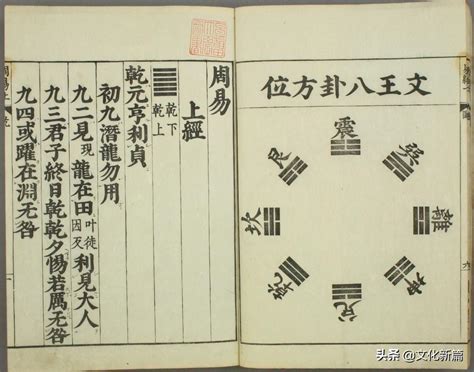 文王八卦方位
震
巽
離
坤
兌
乾
坎
艮
周易
上經
乾下
乾上
乾元亨利貞
初九潛龍勿用
九二見現龍在田叶徒因反利見大人
九三君子終日乾乾夕惕若厲无咎
九四或躍在淵无咎
头条 @文化新篇